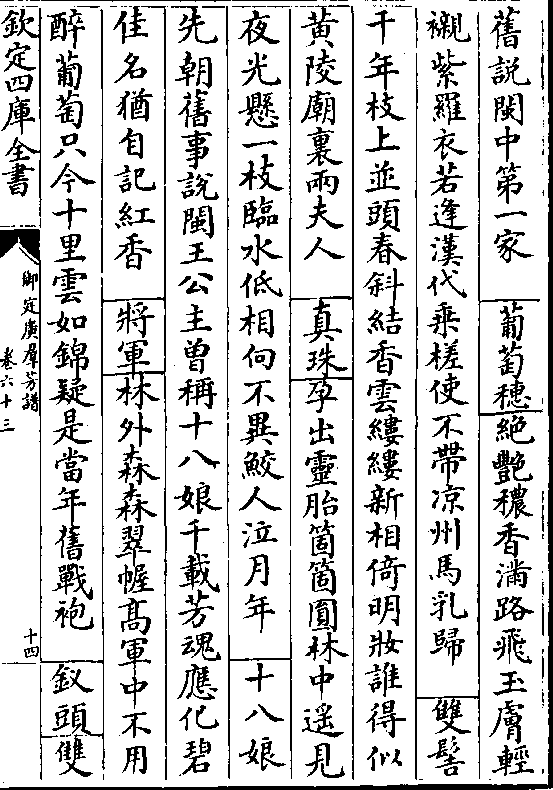 舊說閩中第一家　葡萄穗絕艷穠香滿路飛玉膚輕
襯紫羅衣若逢漢代乘槎使不帶凉州馬乳歸　雙髻
千年枝上並頭春斜結香雲縷縷新相倚明妝誰得似
黃陵廟裏兩夫人　真珠孕出靈胎箇箇圓林中遥見
夜光懸一枝臨水低相向不異鮫人泣月年　十八娘
先朝舊事說閩王公主曽稱十八娘千載芳魂應化碧
佳名猶自記紅香　將軍林外森森翠幄髙軍中不用
醉葡萄只今十里雲如錦疑是當年舊戰袍　釵頭雙
欽定四庫全書
御定廣羣芳譜
卷六十三
十四